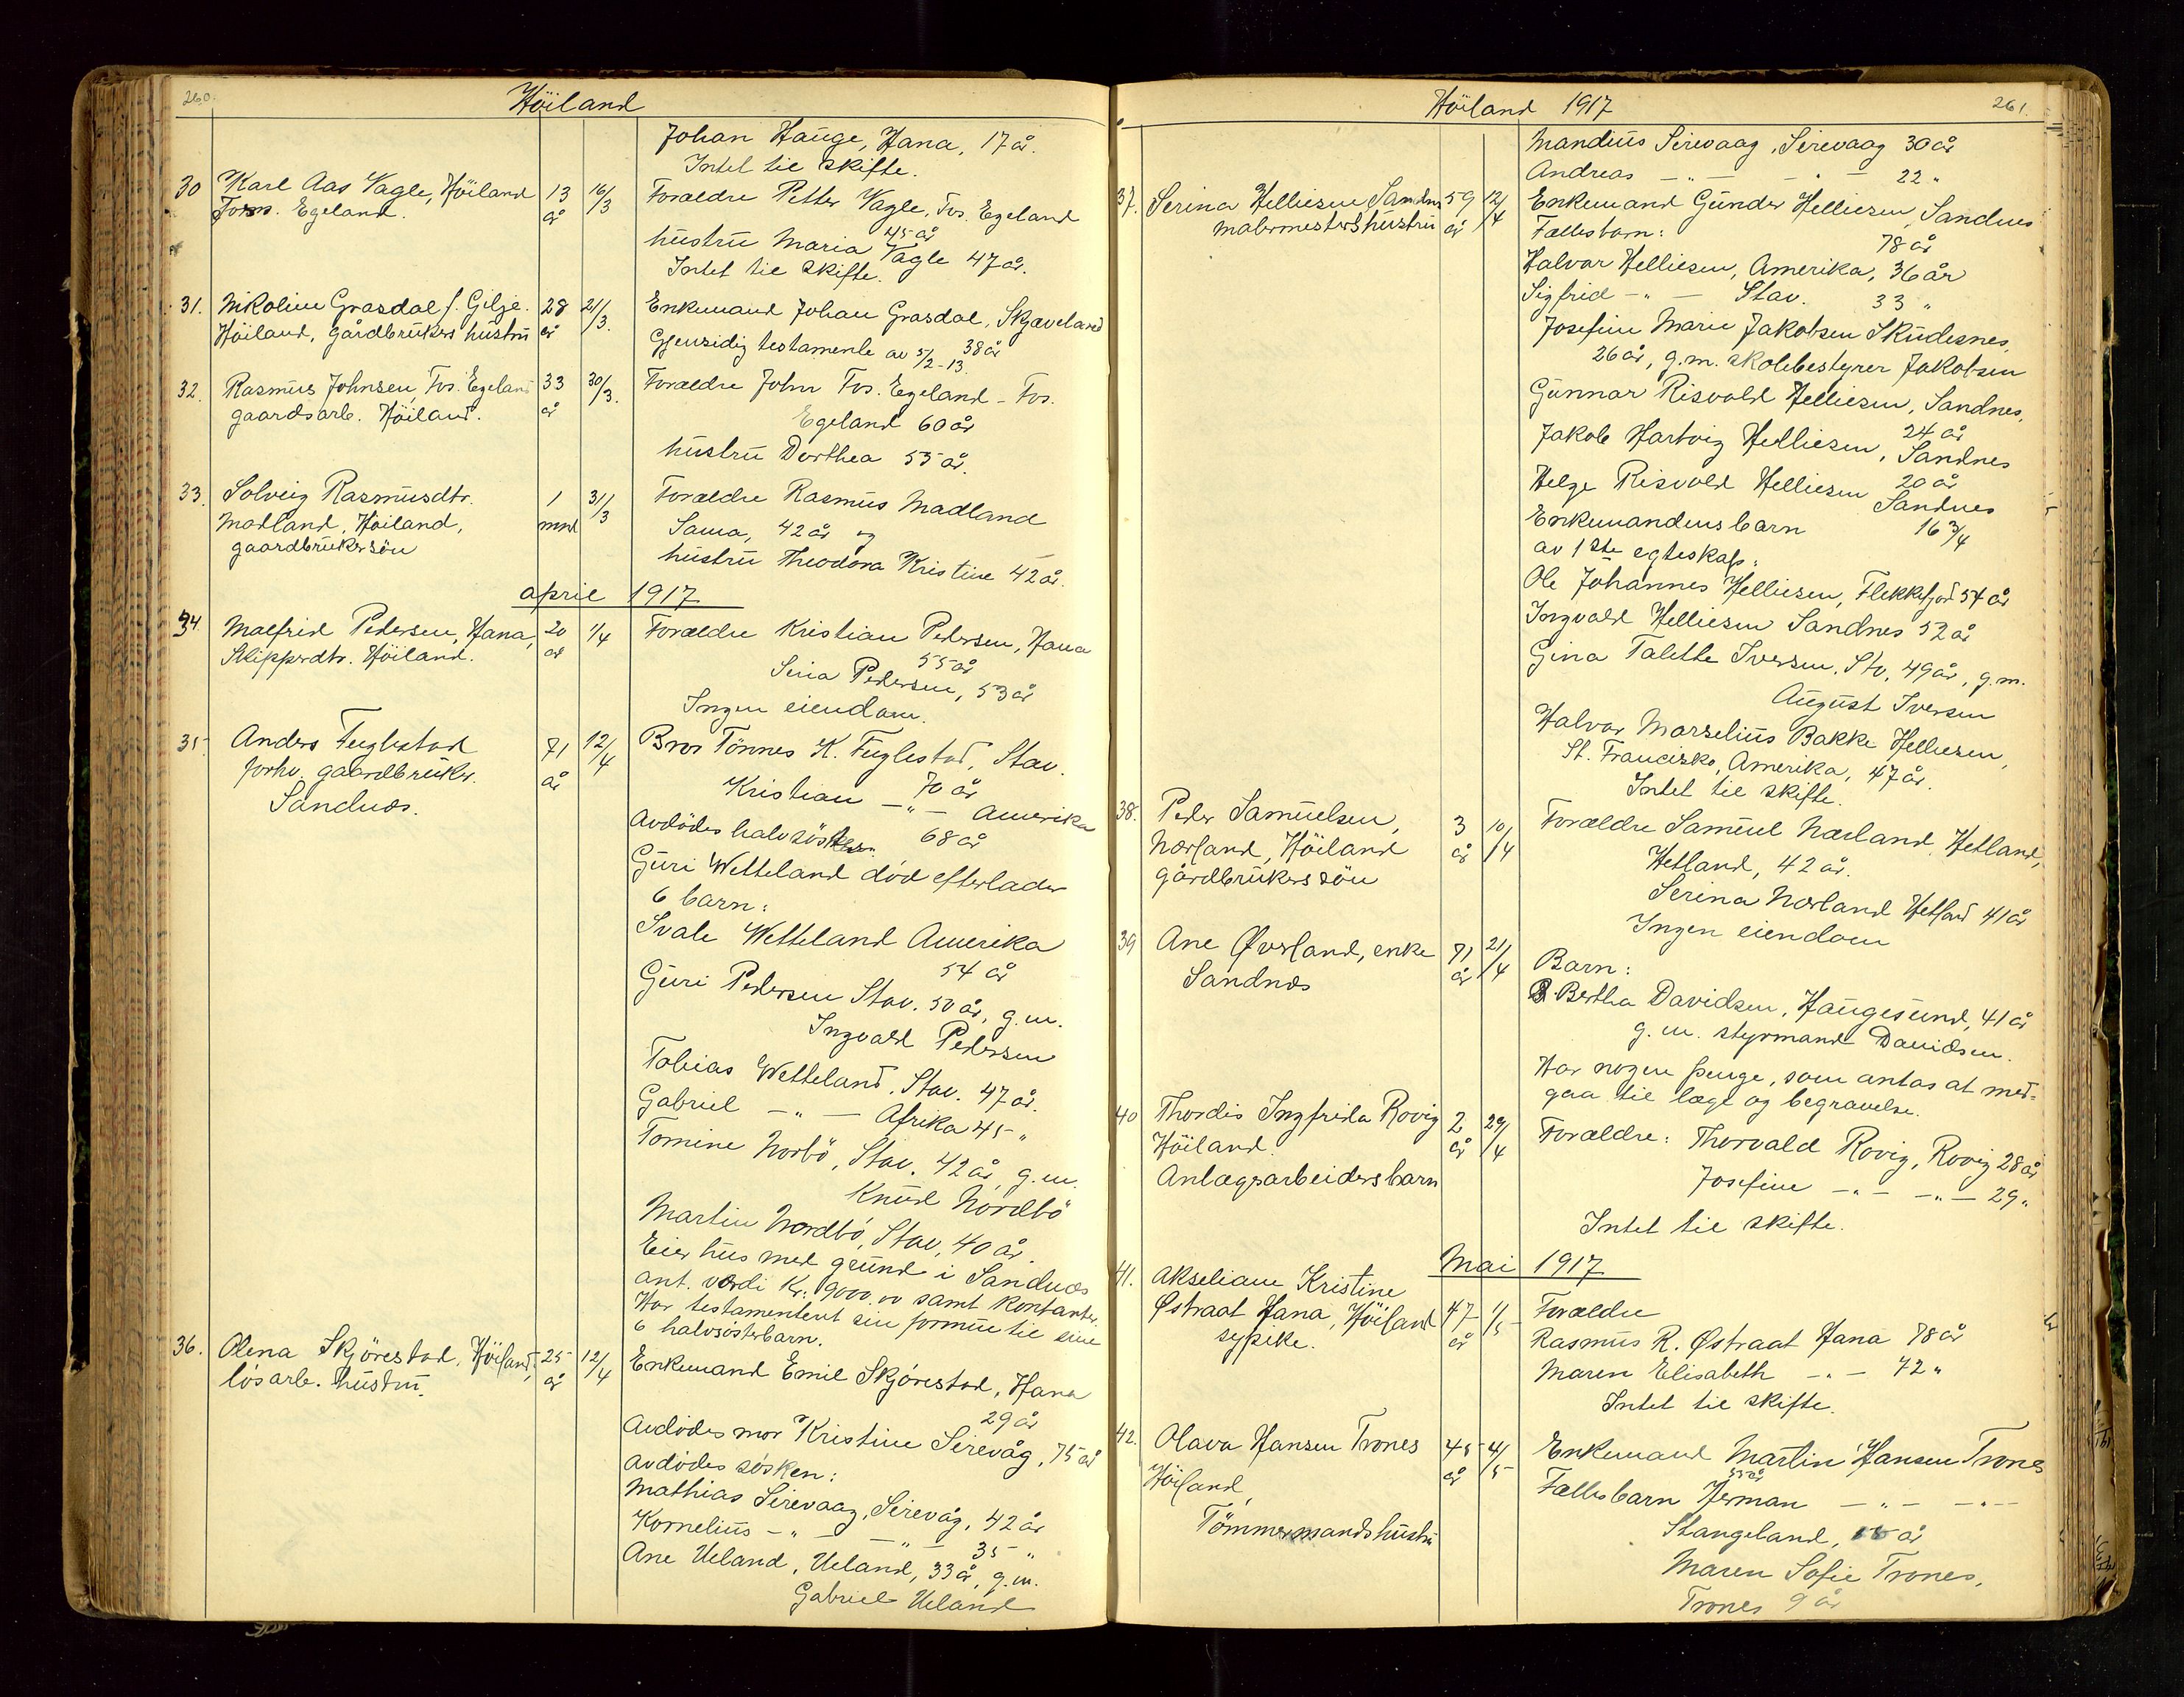 260.
Höiland
Johan Hauge, Hana, 17 år.
Intet til skifte.
30 Karl Aas Vagle, Höiland 13 16/3 Forældre Petter Vagle, Fos. Egeland
Foss. Egeland. år 45 år
hustru Maria Vagle 47 år.
Intet til skifte.
31. Nikoline Grasdal f. Gilje. 28 21/3. Enkemand Johan Grasdal, Skjæveland
Höiland, gårdbrukers hustru år 38 år
Gjensidig testamente av 5/2-13
32. Rasmus Johnsen, Fos. Egeland 33 30/3. Forældre John Fos. Egeland - Fos.
gaardsarb. Höiland. år Egeland 60 år
hustru Dorthea 55 år.
33. Solveig Rasmusdtr. 1 31/3 Forældre Rasmus Madland
Madland, Höiland, mnd Sama, 42 år og
gaardbrukersön hustru Theodora Kristine 42 år.
april 1917
34. Malfrid Pedersen, Hana, 20 1/4 Forældre Kristian Pedersen, Hana
Skipperdtr. Höiland. år 55 år
Sina Pedersen, 53 år
Ingen eiendom.
35 Anders Fuglestad 71 12/4 Bror Tönnes K. Fuglestad, Stav.
forhv. gaardbruker. år 70 år
Sandnæs. Kristian — " — Amerika
68 år
Avdödes halvsöster
Guri Wetteland död efterlader
6 barn:
Svale Wetteland Amerika
54 år
Guri Pedersen Stav. 50 år, g.m.
Ingvald Pedersen
Tobias Wetteland, Stav. 47 år.
Gabriel — " — Afrika 45 "
Tomine Norbö, Stav. 42 år, g.m.
Knud Nordbö
Martin Nordbö, Stav, 40 år.
Eier hus med grund i Sandnæs
ant. værdi Kr. 9000.00 samt kontanter.
Har testamentert sin formue til sine
6 halvsösterbarn.
36. Olena Skjörestad, Höiland, 25 12/4 Enkemand Emil Skjörestad, Hana
lösarb. hustru. år 29 år
Avdödes mor Kristine Sirevåg, 75 år
avdödes sösken:
Mathias Sirevaag, Sirevåg, 42 år
Kornelius — " — " — 35 "
Ane Ueland, Ueland, 33 år, g.m.
Gabriel Ueland
Höiland 1917
261.
Mandius Sirevaag, Sirevaag 30 år
Andreas — " — " — 22 "
37. Serina Helliesen Sandnes 59 12/4 Enkemand Gunder Helliesen, Sandnes
malermesters hustru år 78 år
Fællesbarn:
Halvor Helliesen, Amerika, 36 år
Sigfrid — " — Stav. 33 "
Josefine Marie Jakobsen Skudesnes,
26 år, g.m. skolebestyrer Jakobsen
Gunnar Risvold Helliesen, Sandnes,
24 år
Jakob Hartvig Helliesen, Sandnes
20 år
Helge Risvold Helliesen Sandnes
16 3/4
Enkemandens barn
av 1ste egteskap:
Ole Johannes Helliesen, Flekkefjord 54 år
Ingvald Helliesen Sandnes 52 år
Gina Talette Iversen, Stv, 49 år, g.m.
August Iversen
Halvor Marselius Bakke Helliesen,
St. Francisko, Amerika, 47 år.
Intet til skifte.
38. Peder Samuelsen, 3 10/4 Forældre Samuel Norland Hetland,
Norland, Höiland år Hetland, 42 år.
gårdbrukers sön Serina Norland Hetland 41 år
Ingen eiendom
39 Ane Øverland, enke 71 21/4 Barn:
Sandnæs år
Bertha Davidsen, Haugesund, 41 år
g.m. styrmand Davidsen.
Har nogen penge, som antas at med-
gaa til læge og begravelse.
40 Thordis Ingfrida Rovig 2 29/4 Forældre: Thorvald Rovig, Rovig 28 år
Höiland. år Josefine — " — — " — 29 "
Anlægsarbeidersbarn
Intet til skifte.
Mai 1917
41. Akseliane Kristine
Østraat Hana, Höiland 47 1/5 Forældre
sypike. år Rasmus R. Østraat Hana 78 år
Maren Elisabeth — " — 72 "
Intet til skifte.
42. Olava Hansen Trones 45 4/5 Enkemand Martin Hansen Trones
Höiland år 55 år
Tömmermandshustru Fællesbarn Herman — " — — " —
Stangeland, år
Maren Sofie Trones,
Trones 9 år